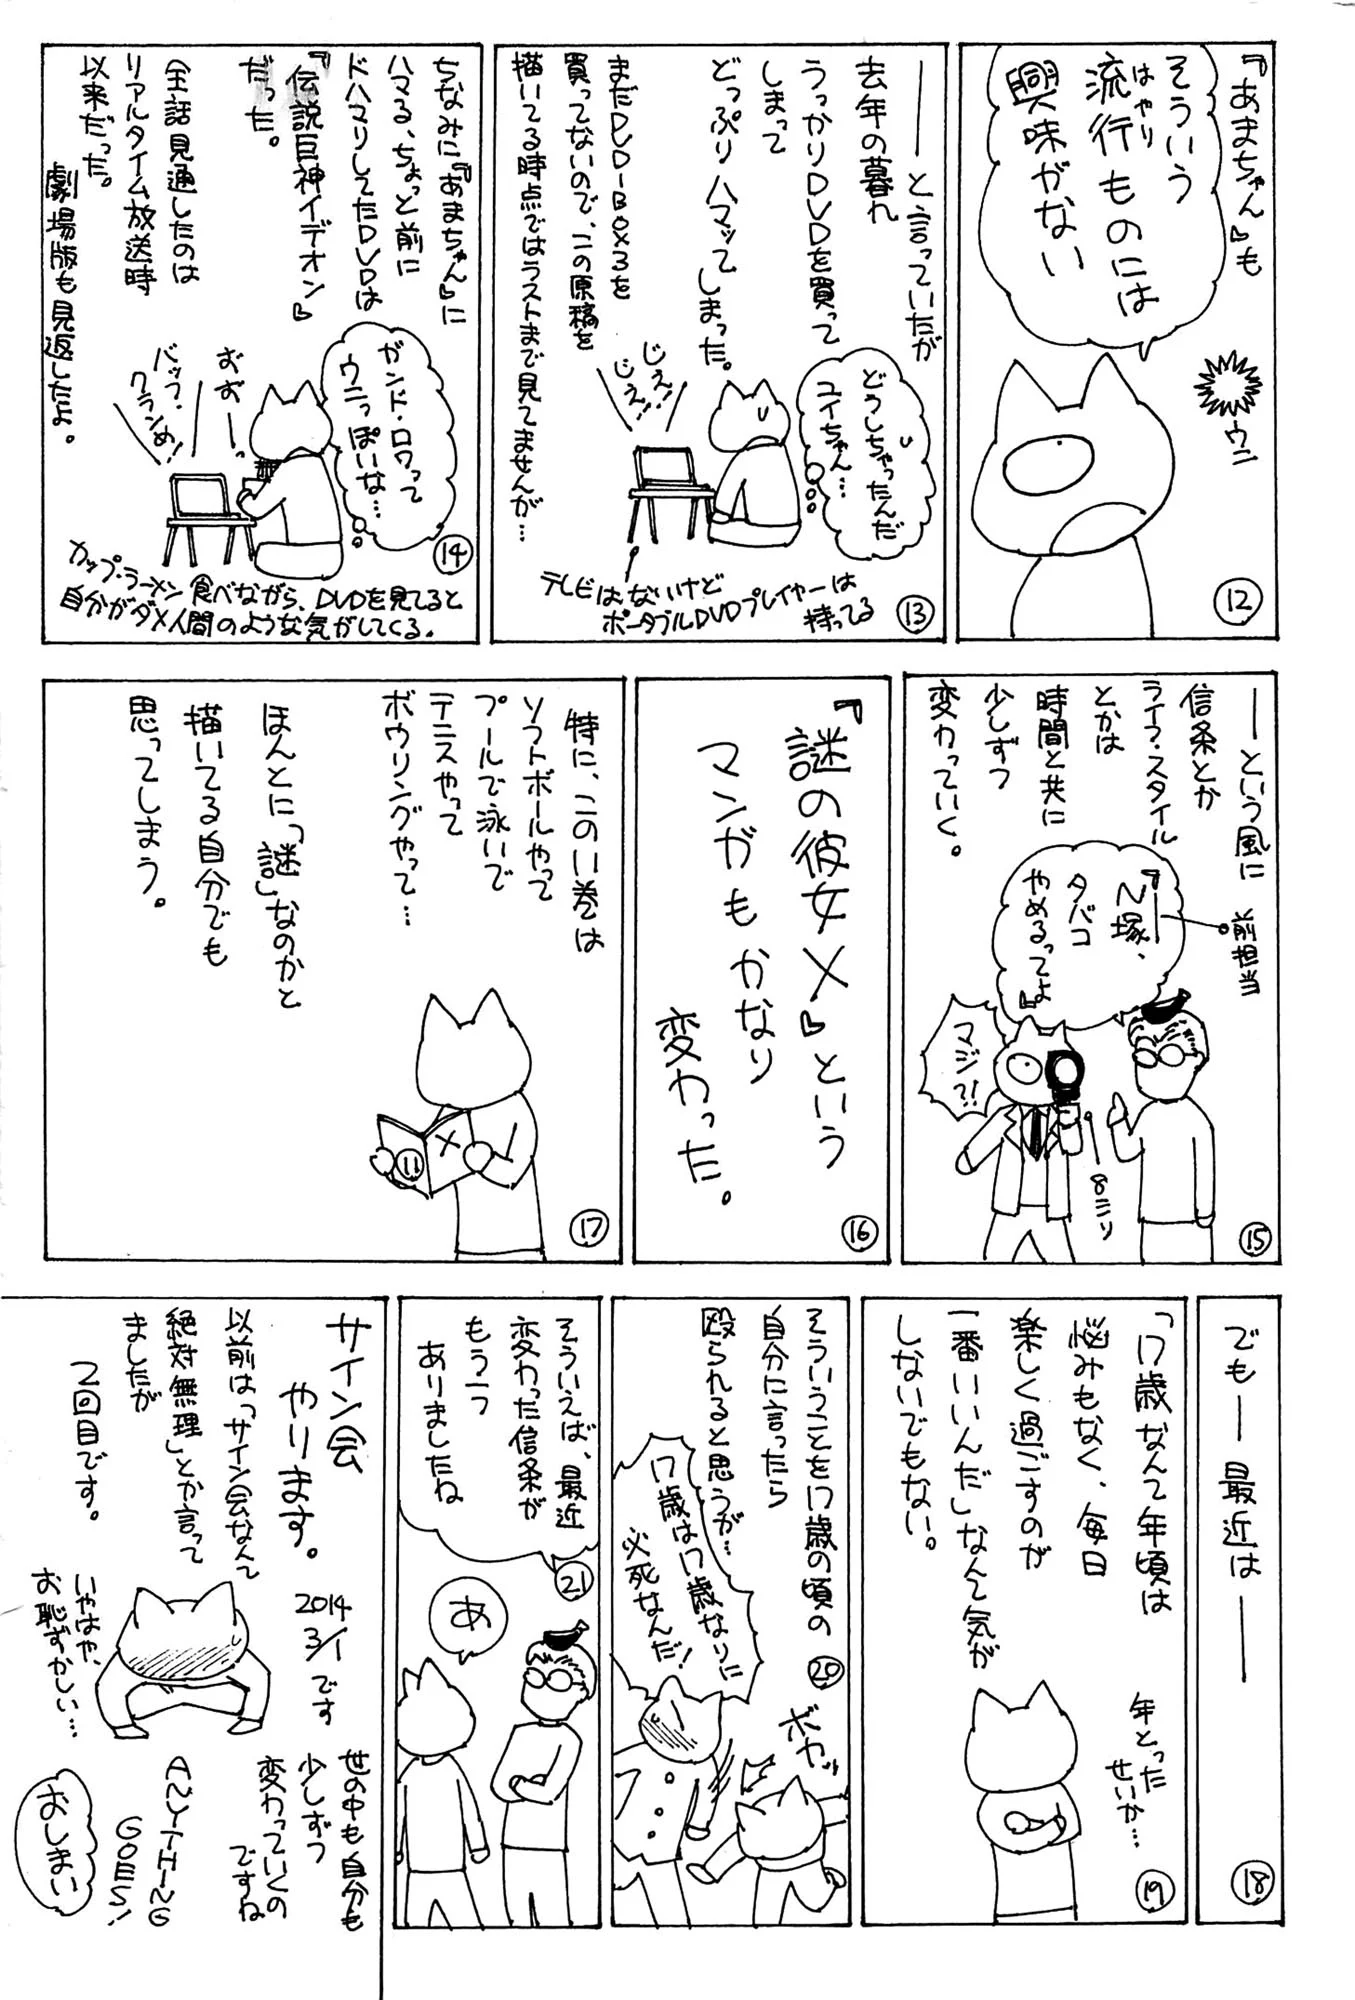 『あまちゃん』も
そういう
流行ものには
はやり
興味がない
ウン
⑫
――と言っていたが
去年の暮れ
うっかりDVDを買って
しまって
どっぷりハマッてしまった。
まだDVD-BOX3を
買ってないので、この原稿を
描いてる時点ではラストまで見てませんが…
どうしちゃったんだ
ユイちゃん…
じぇ!
じぇ!!
テレビはないけど
ポータブルDVDプレイヤーは
持ってる
⑬
ちなみに『あまちゃん』に
ハマる、ちょっと前に
ドハマリしてたDVDは
『伝説巨神イデオン』
だった。
全話見通したのは
リアルタイム放送時
以来だった。
劇場版も見返したよ。
ガンド・ロワって
ウニっぽいな…
おぉーっ
バッフ・
クランめ!
カップ・ラーメン食べながら、DVDを見てると
自分がダメ人間のような気がしてくる。
⑭
――という風に
信条とか
ライフ・スタイル
とかは
時間と共に
少しずつ
変わっていく。
『N塚、
タバコ
やめるってよ』
前担当
マジ?!
8ミリ
⑮
『謎の彼女X』という
マンガもかなり
変わった。
⑯
特に、この11巻は
ソフトボールやって
プールで泳いで
テニスやって
ボウリングやって…
ほんとに「謎」なのかと
描いてる自分でも
思ってしまう。
X
⑪
⑰
でも――最近は――
⑱
「17歳なんて年頃は
悩みもなく、毎日
楽しく過ごすのが
一番いいんだ」なんて気が
しないでもない。
年とった
せいか…
⑲
そういうことを17歳の頃の
自分に言ったら
殴られると思うが…
17歳は17歳なりに
必死なんだ!
ボカッ
⑳
そういえば、最近
変わった信条が
もう一つ
ありましたね
あ
㉑
サイン会
やります。
2014
3/1です
以前は「サイン会なんて
絶対無理」とか言って
ましたが
2回目です。
いやはや、
お恥ずかしい…
世の中も自分も
少しずつ
変わっていくの
ですね
ANYTHING
GOES!
おしまい